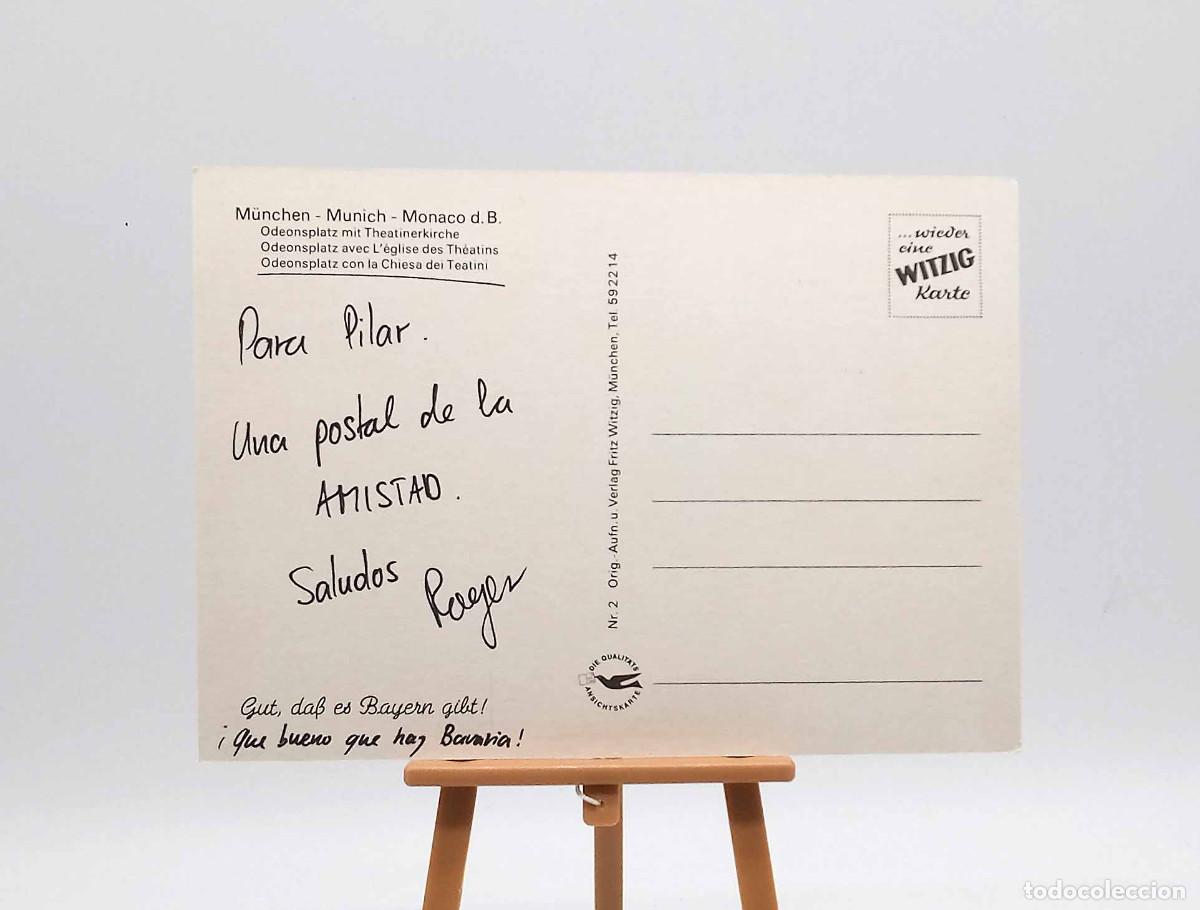 München - Munich - Monaco d. B.
Odeonsplatz mit Theatinerkirche
Odeonsplatz avec L'église des Théatins
Odeonsplatz con la Chiesa dei Teatini
Para Pilar.
Una postal de la
AMISTAD.
Saludos Roger
Gut, daß es Bayern gibt!
¡Que bueno que hay Bavaria!
Nr. 2 Orig.-Aufn. u. Verlag Fritz Witzig, München, Tel. 59 22 14
DIE QUALITÄTS
ANSICHTSKARTE
...wieder
eine
WITZIG
Karte
todocoleccion